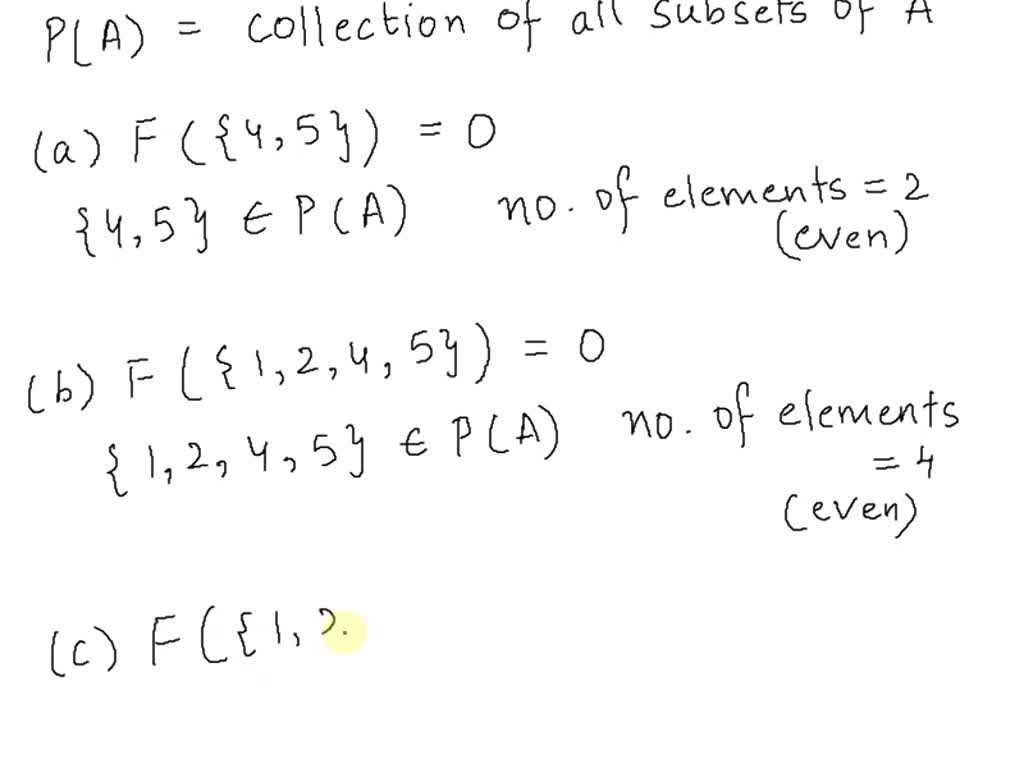 P(A) = collection of all subsets of A
(a) F ({4,5}) = 0
{4,5} ∈ P(A) no. of elements = 2
(even)
(b) F ({1,2,4,5}) = 0
{1,2,4,5} ∈ P(A) no. of elements
= 4
(even)
(c) F({1,